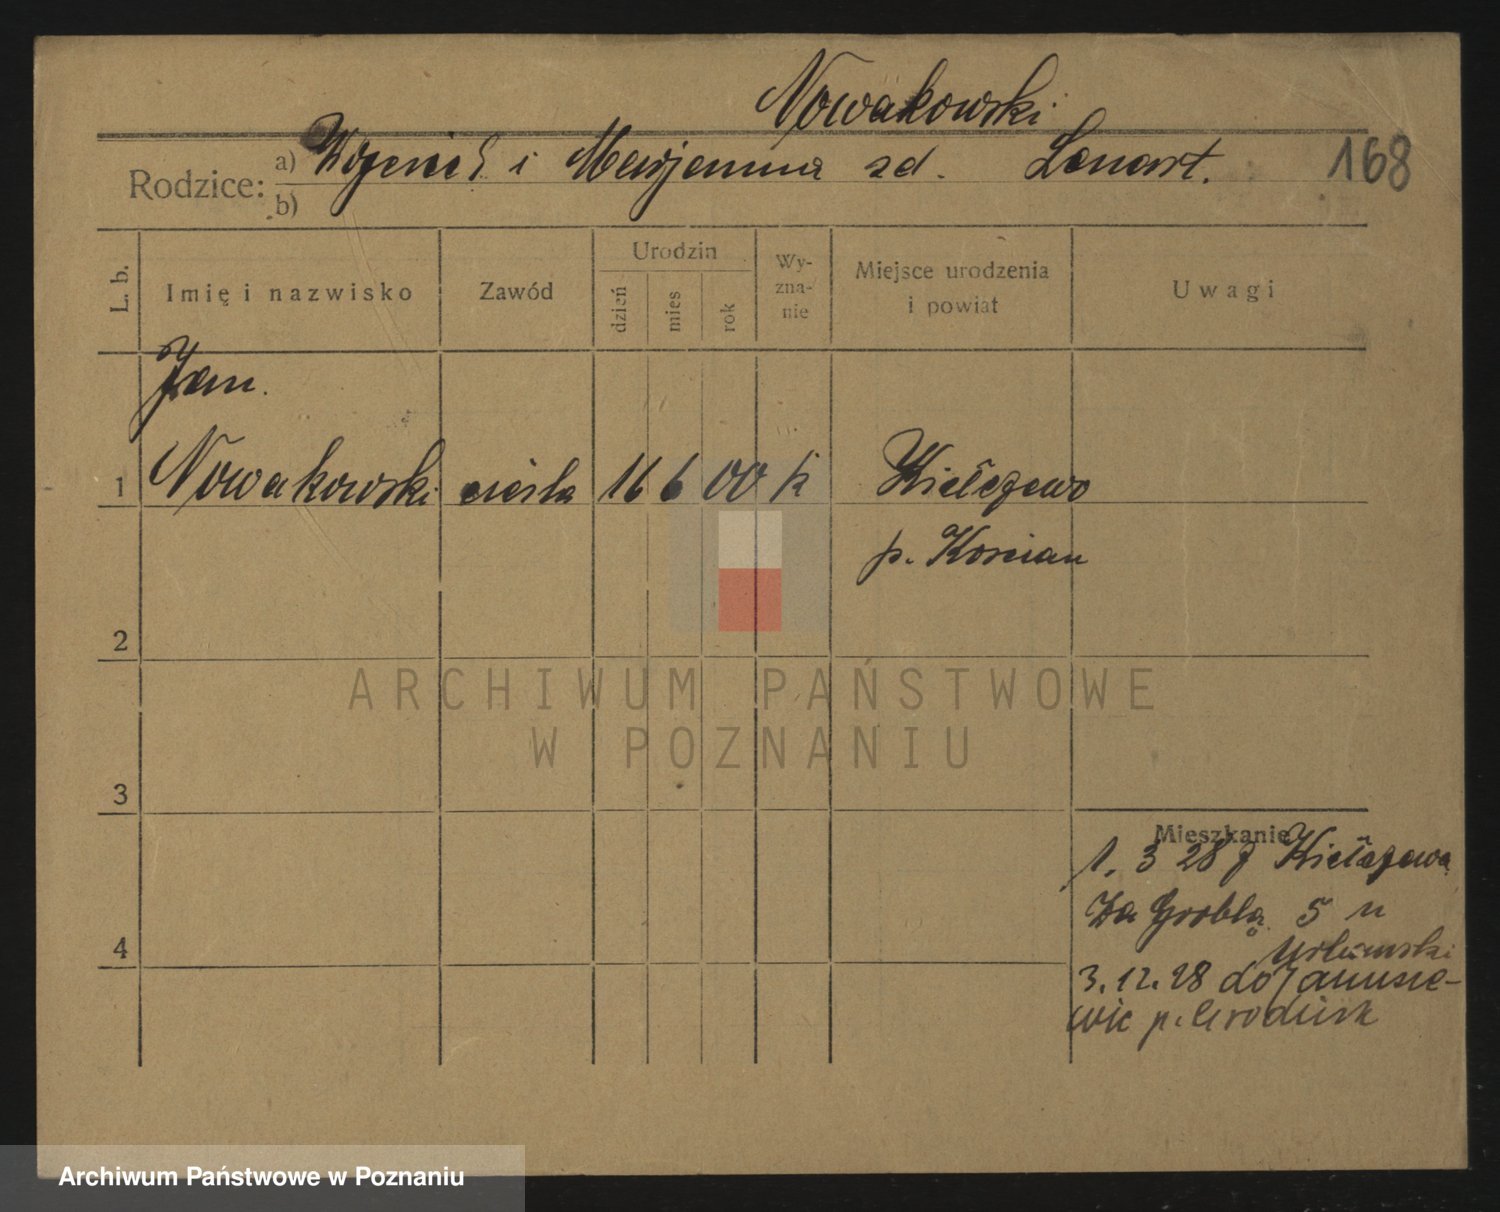 Nowakowski
Rodzice: a) Wojciech i Marjanna zd. Lenart. 168
b)
L. b. Imię i nazwisko Zawód Urodzin dzień mies rok Wy-zna-nie Miejsce urodzenia i powiat Uwagi
Jan.
1 Nowakowski cieśla 16 6 00 k Kiełczewo
p. Kościan
2
ARCHIWUM PAŃSTWOWE
W POZNANIU
3
Mieszkanie
1. 3 28 z Kiełczewa
Za Groblą 5 u
Urbański
4
3.12.28 do Januszewic p. Grodzisk
Archiwum Państwowe w Poznaniu